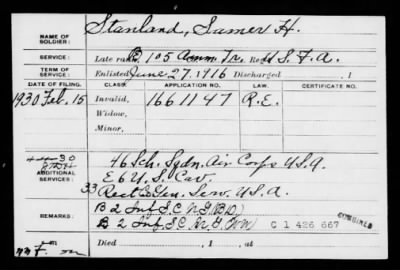 NAME OF SOLDIER: Stanland, Sumer H.
SERVICE: Late rank, B, 105 Amm. Tr. Reg't U.S.F.A.
TERM OF SERVICE: Enlisted June 27, 1916 Discharged , 1
DATE OF FILING. CLASS. APPLICATION NO. LAW. CERTIFICATE NO.
1930 Feb. 15 Invalid, 1661147 R.E.
Widow,
Minor,
ADDITIONAL SERVICES: 46 Sch. Sqdn. Air Corps U.S.A.
E 6 U.S. Cav.
33 Rect Co Gen. Serv. U.S.A.
REMARKS: B 2 Inf S.C. N.G. (B.D.)
B 2 Inf. S.C. N.G. WW C 1 426 667 COMBINED
Died , 1 , at